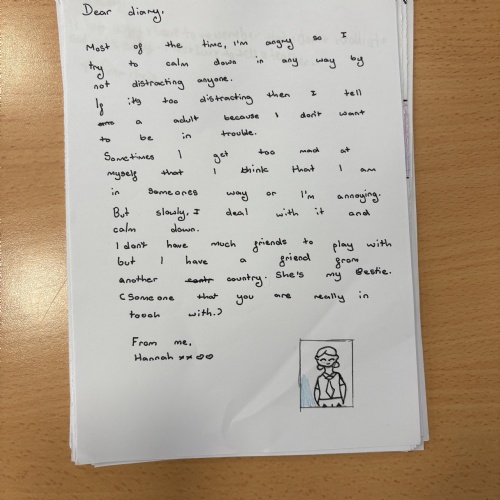 Dear diary,
Most of the time, I'm angry so I
try to calm down in any way by
not distracting anyone.
If its too distracting then I tell
a adult because I don't want
to be in trouble.
Sometimes I get too mad at
myself that I think that I am
in someones way or I'm annoying.
But slowly, I deal with it and
calm down.
I don't have much friends to play with
but I have a friend from
another country. She's my Bestie.
(Someone that you are really in
touch with.)
From me,
Hannah xx ♡♡